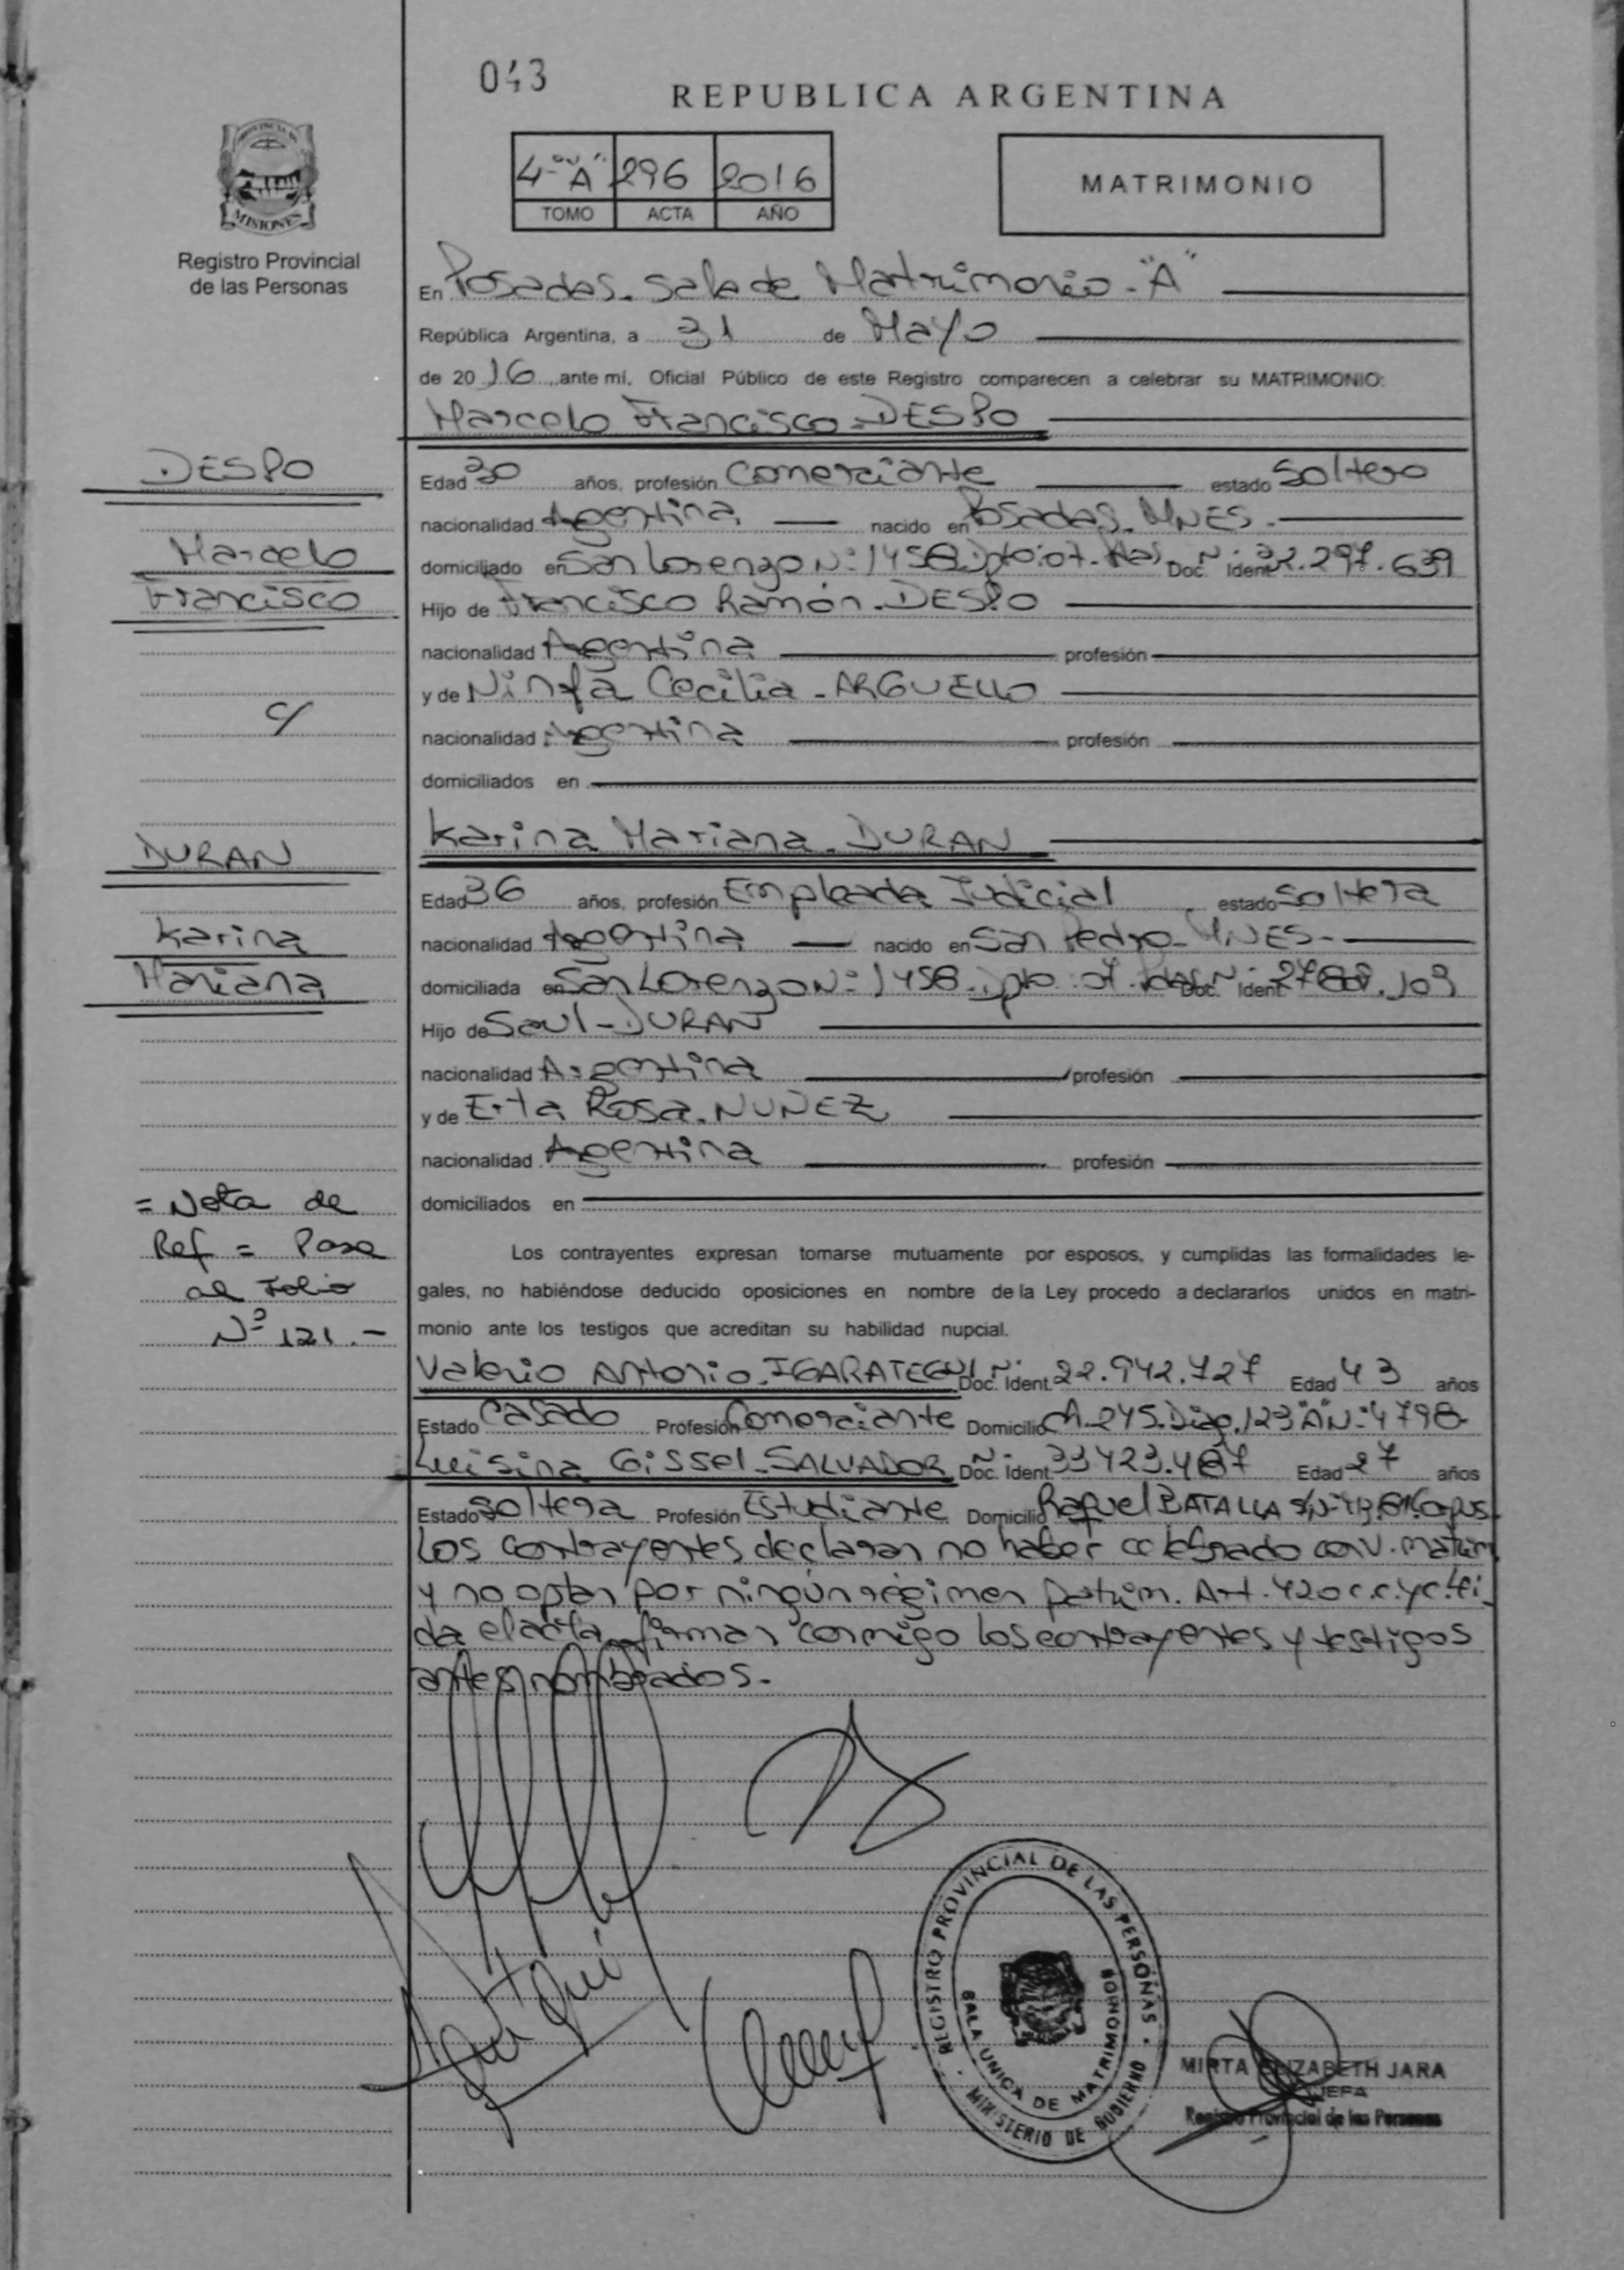 043
REPUBLICA ARGENTINA
4º "A" 296 2016
TOMO ACTA AÑO
MATRIMONIO
PROVINCIA DE
MISIONES
Registro Provincial
de las Personas
En Posadas. Sala de Matrimonio - "A"
República Argentina, a 31 de Mayo
de 20 16 ante mí, Oficial Público de este Registro comparecen a celebrar su MATRIMONIO:
Marcelo Francisco - DESPO
DESPO
Marcelo
Francisco
Edad 30 años, profesión Comerciante estado Soltero
nacionalidad Argentina nacido en Posadas. MNES.
domiciliado en San Lorenzo Nº 1458 Dpto: 07. Doc. Ident. Nº 32.297.639
Hijo de Francisco Ramón. DESPO
nacionalidad Argentina profesión
y de Ninfa Cecilia - ARGUELLO
c/
nacionalidad Argentina profesión
domiciliados en
Karina Mariana. DURAN
DURAN
Karina
Mariana
Edad 36 años, profesión Empleada Judicial estado Soltera
nacionalidad Argentina nacido en San Pedro - MNES -
domiciliada en San Lorenzo Nº 1458. Dpto: 07. Doc. Nº Ident.
Hijo de Saul - DURAN
nacionalidad Argentina profesión
y de Rosa. NUÑEZ
nacionalidad Argentina profesión
domiciliados en
= Nota de
Ref = Pasa
al Folio
Nº 121.-
Los contrayentes expresan tomarse mutuamente por esposos, y cumplidas las formalidades le-
gales, no habiéndose deducido oposiciones en nombre de la Ley procedo a declararlos unidos en matri-
monio ante los testigos que acreditan su habilidad nupcial.
Valerio Antonio. IGARATEGUI Doc. Ident. Nº 22.942.727 Edad 43 años
Estado Casado Profesión Comerciante Domicilio 123 "A" Nº 4798
Luisina Gissel - SALVADOR Doc. Ident. Nº 33423.487 Edad 27 años
Estado Soltera Profesión Estudiante Domicilio Rafael BATALLA S/Nº
Los contrayentes declaran no haber celebrado conv. matrim
y no optan por ningún régimen patrim. Art. 420 c.c.yc. Leí-
da el acta, firman conmigo los contrayentes y testigos
antes nombrados.-
REGISTRO PROVINCIAL DE LAS PERSONAS
SALA UNICA DE MATRIMONIOS
MINISTERIO DE GOBIERNO
MIRTA ELIZABETH JARA
JEFA
Registro Provincial de las Personas